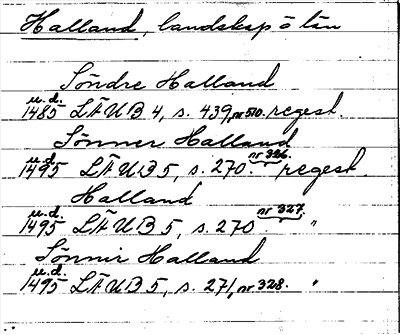 Halland, landskap o län
Söndre Halland
u.d.
1485 LÄUB 4, s. 439, nr 510. regest.
Sönner Halland
u.d.
1495 LÄUB 5, s. 270 nr 326. regest.
Halland
u.d.
1495 LÄUB 5, s. 270 nr 327. "
Sönnir Halland
u.d.
1495 LÄUB 5, s. 271, nr 328. "